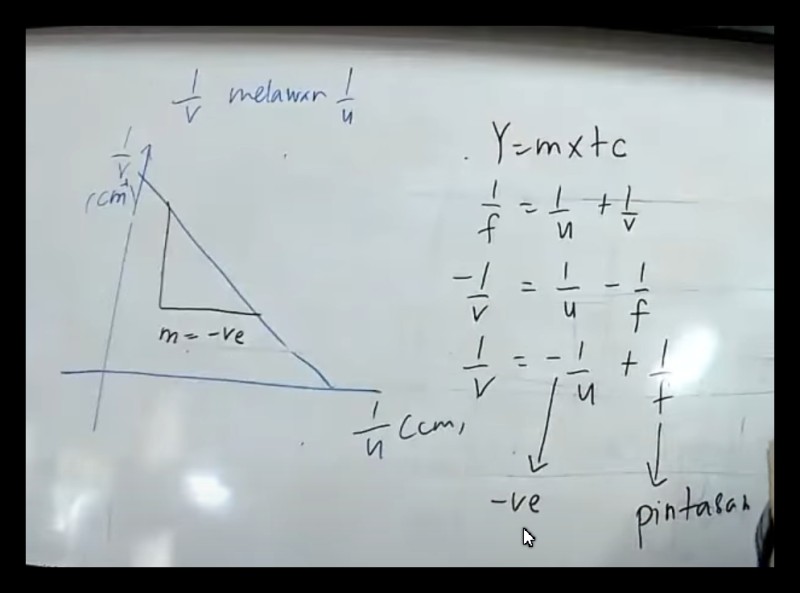 1/v melawan 1/u
1/v
(cm⁻¹)
m = -ve
1/u (cm,
Y=mx+c
1/f = 1/u + 1/v
-1/v = 1/u - 1/f
1/v = -1/u + 1/f
-ve
pintasan